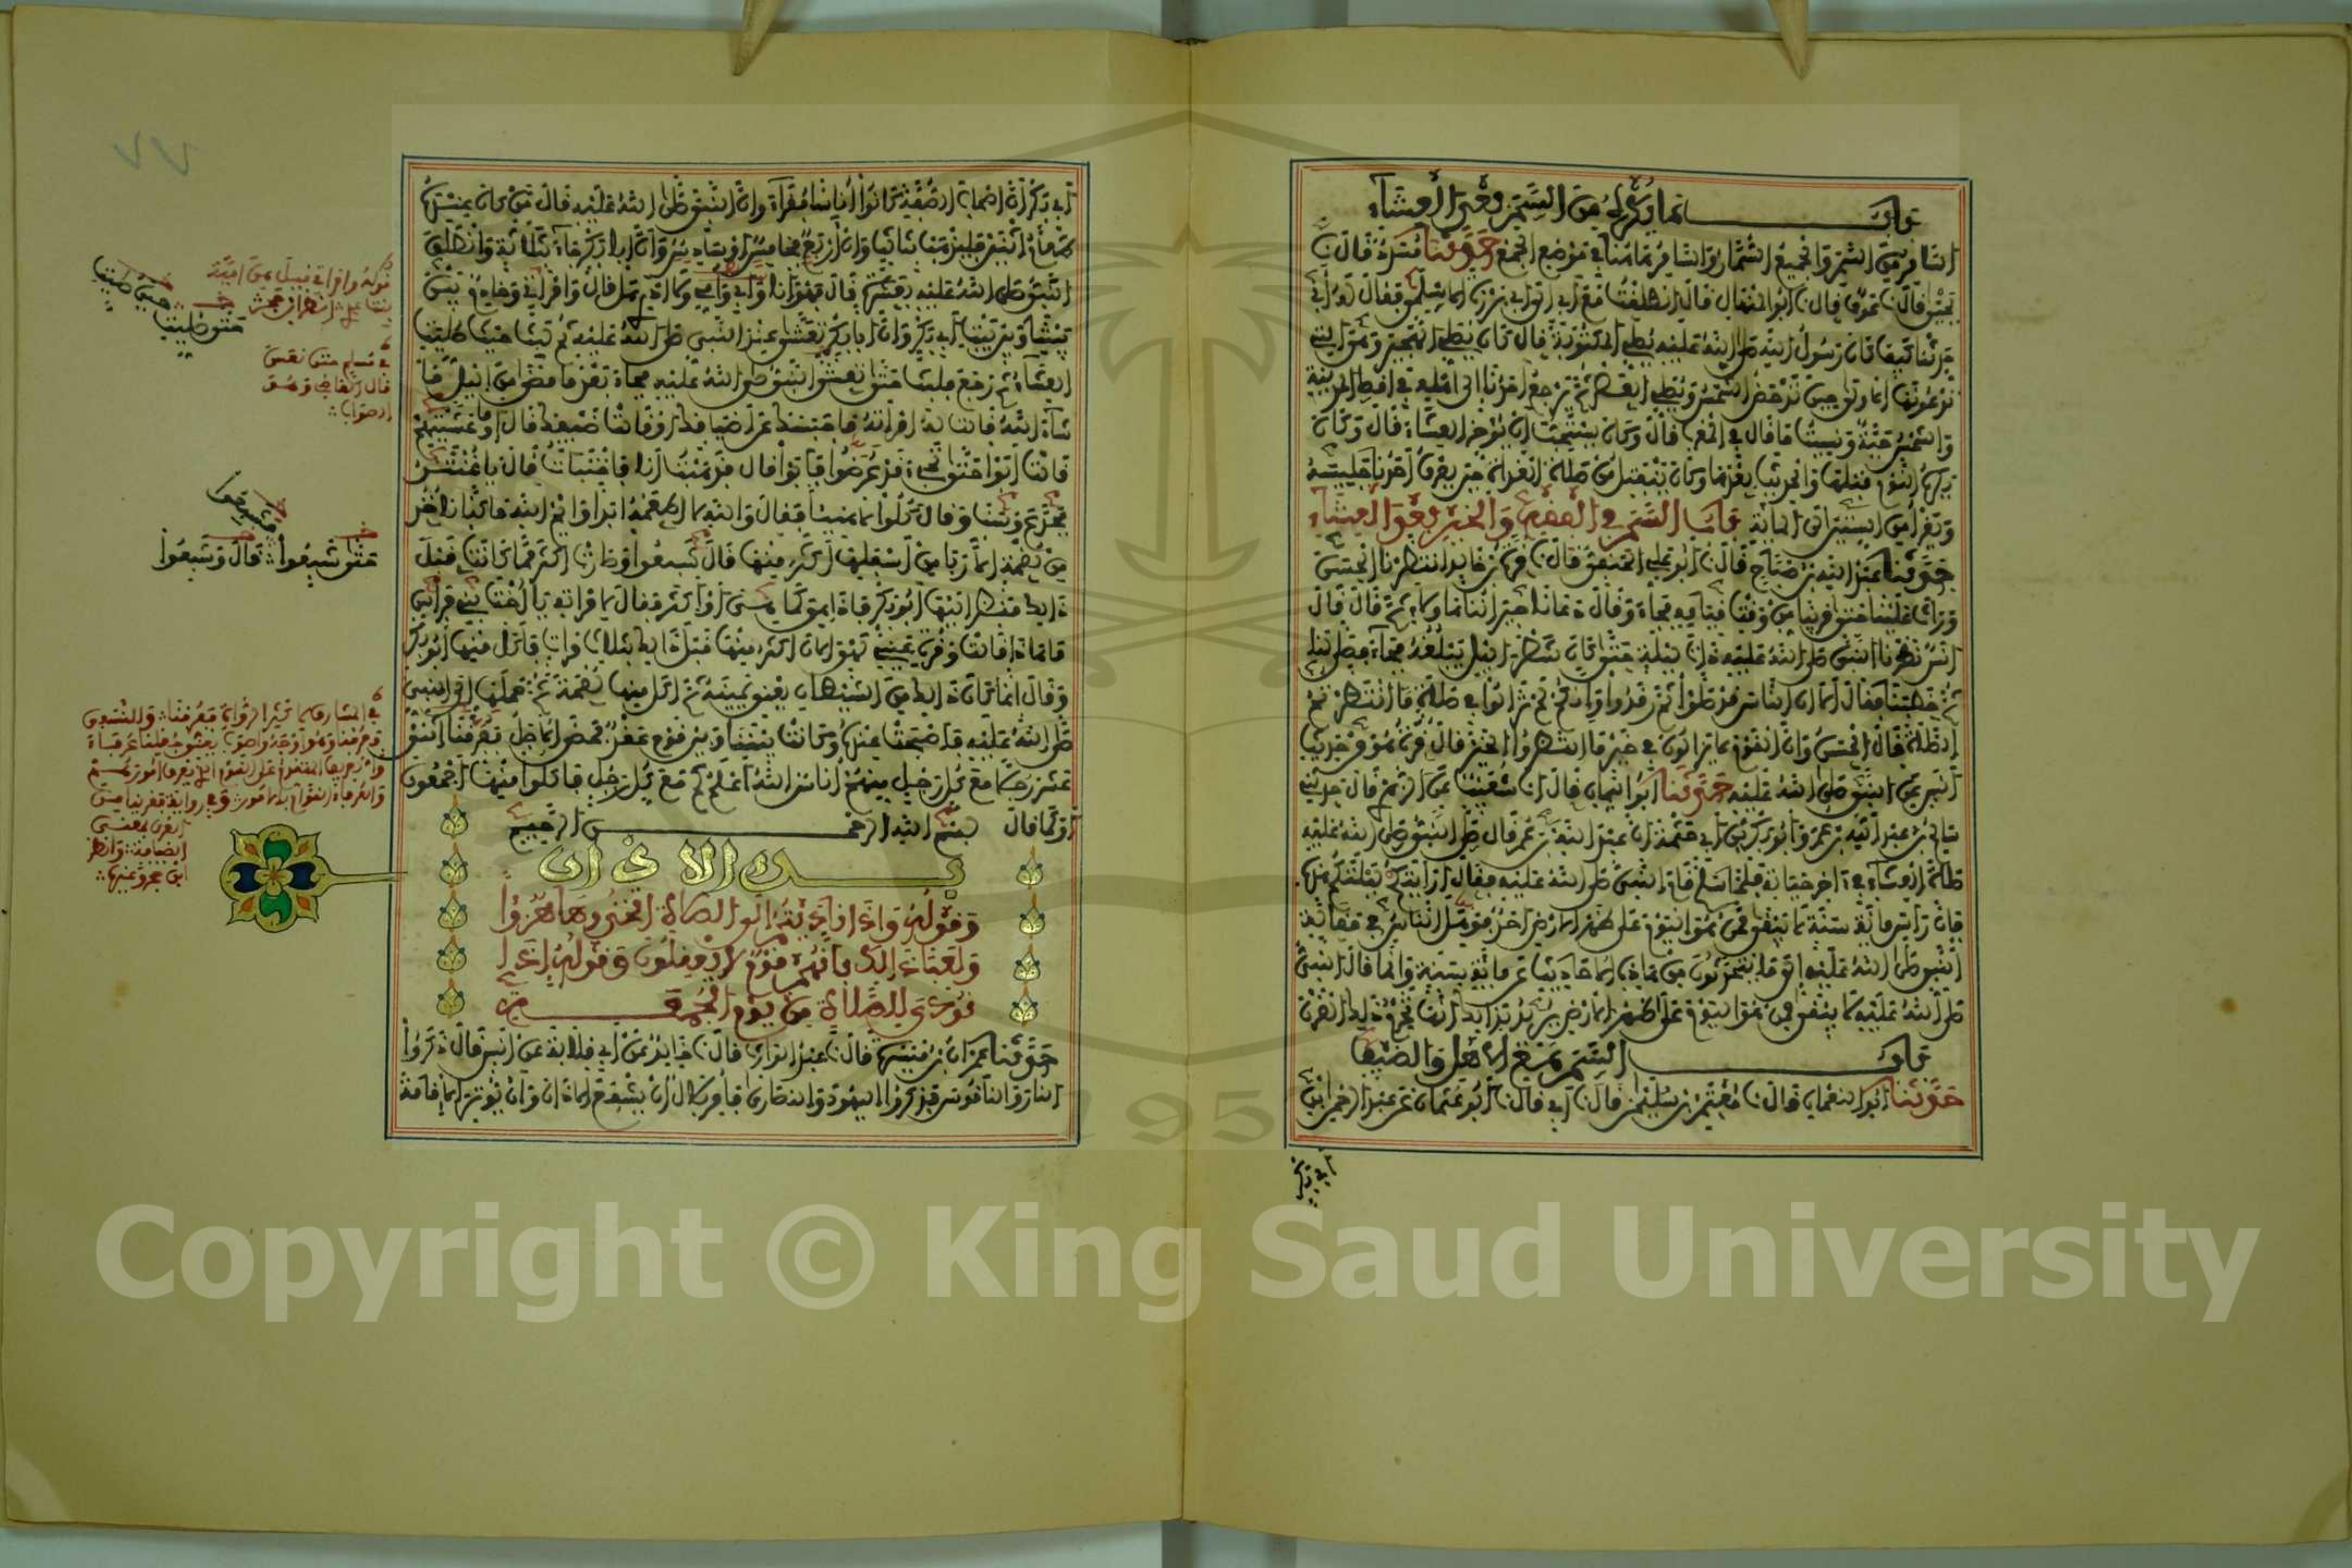 باب ما يكره من السمر بعد العشاء
السامر من السمر والجميع السمار والسامر هاهنا في موضع الجمع حدثنا مسدد قال نا
يحيى قال نا عوف قال نا ابو المنهال قال انطلقت مع ابي الى ابي برزة الاسلمي فقال له ابي
حدثنا كيف كان رسول الله صلى الله عليه يصلي المكتوبة قال كان يصلي الهجير وهي التي
تدعونها الاولى حين تدحض الشمس ويصلي العصر ثم يرجع احدنا الى اهله في اقصى المدينة
والشمس حية ونسيت ما قال في المغرب قال وكان يستحب ان يؤخر العشاء قال وكان
يكره النوم قبلها والحديث بعدها وكان ينفتل من صلاة الغداة حين يعرف احدنا جليسه
ويقرأ من الستين الى المائة باب السمر في الفقه والخير بعد العشاء
حدثنا عبد الله بن صباح قال نا ابو علي الحنفي قال نا قرة بن خالد انتظرنا الحسن
وراث علينا حتى قربنا من وقت قيامه فجاء وقال دعانا جيراننا هاولاء ثم قال قال
انس نظرنا النبي صلى الله عليه ذات ليلة حتى كان شطر الليل يبلغه فجاء فصلى لنا
ثم خطبنا فقال الا ان الناس قد صلوا ثم رقدوا وانكم لم تزالوا في صلاة ما انتظرتم
الصلاة قال الحسن وان القوم لا يزالون في خير ما انتظروا الخير قال قرة هو من حديث
انس عن النبي صلى الله عليه حدثنا ابو اليمان قال انا شعيب عن الزهري قال حدثني
سالم بن عبد الله بن عمر وابو بكر بن ابي حثمة ان عبد الله بن عمر قال صلى النبي صلى الله عليه
صلاة العشاء في اخر حياته فلما سلم قام النبي صلى الله عليه فقال ارايتكم ليلتكم هذه
فان راس مائة سنة لا يبقى ممن هو اليوم على ظهر الارض احد فوهل الناس في مقالة
النبي صلى الله عليه الى ما يتحدثون من هذه الاحاديث عن مائة سنة وانما قال النبي
صلى الله عليه لا يبقى ممن هو اليوم على ظهر الارض يريد بذلك انها تخرم ذلك القرن
باب السمر مع الاهل والضيف
حدثنا ابو النعمان قال نا معتمر بن سليمن قال نا ابي قال نا ابو عثمان عن عبد الرحمن بن
ابي بكر
ابي بكر ان اصحاب الصفة كانوا اناسا فقراء وان النبي صلى الله عليه قال من كان عنده
طعام اثنين فليذهب بثالث وان اربع فخامس او سادس وان ابا بكر جاء بثلاثة وانطلق
النبي صلى الله عليه بعشرة قال فهو انا وابي وامي ولا ادري هل قال وامراتي وخادم بين
بيتنا وبين بيت ابي بكر وان ابا بكر تعشى عند النبي صلى الله عليه ثم لبث حيث صليت
العشاء ثم رجع فلبث حتى تعشى النبي صلى الله عليه فجاء بعد ما مضى من الليل ما
شاء الله قالت له امراته ما حبسك عن اضيافك او قالت ضيفك قال اوما عشيتهم
قالت ابوا حتى تجيء قد عرضوا فابوا قال فذهبت انا فاختبات قال يا غنثر
فجدع وسب وقال كلوا لا هنيئا فقال والله لا اطعمه ابدا وايم الله ما كنا ناخذ
من لقمة الا ربا من اسفلها اكثر منها قال شبعوا وصارت اكثر مما كانت قبل
ذلك فنظر اليها ابو بكر فاذا هي كما هي او اكثر فقال لامراته يا اخت بني فراس
ما هاذا قالت لا وقرة عيني لهي الان اكثر منها قبل ذلك بثلاث مرات فاكل منها ابو بكر
وقال انما كان ذلك من الشيطان يعني يمينه ثم اكل منها لقمة ثم حملها الى النبي
صلى الله عليه فاصبحت عنده وكانت بيننا وبين قوم عقد فمضى الاجل فعرفنا اثني
عشر رجلا مع كل رجل منهم اناس الله اعلم كم مع كل رجل فاكلوا منها اجمعون
او كما قال بسم الله الرحمن الرحيم
بدء الاذان
وقوله واذا ناديتم الى الصلاة اتخذوها هزؤا
ولعبا ذلك بانهم قوم لا يعقلون وقوله اذا
نودي للصلاة من يوم الجمعة
حدثنا عمران بن ميسرة قال نا عبد الوارث قال نا خالد عن ابي قلابة عن انس قال ذكروا
النار والناقوس فذكروا اليهود والنصارى فامر بلال ان يشفع الاذان وان يوتر الاقامة
٧٧
حتى شبعوا قال وشبعوا
في مسلم حتى نعس